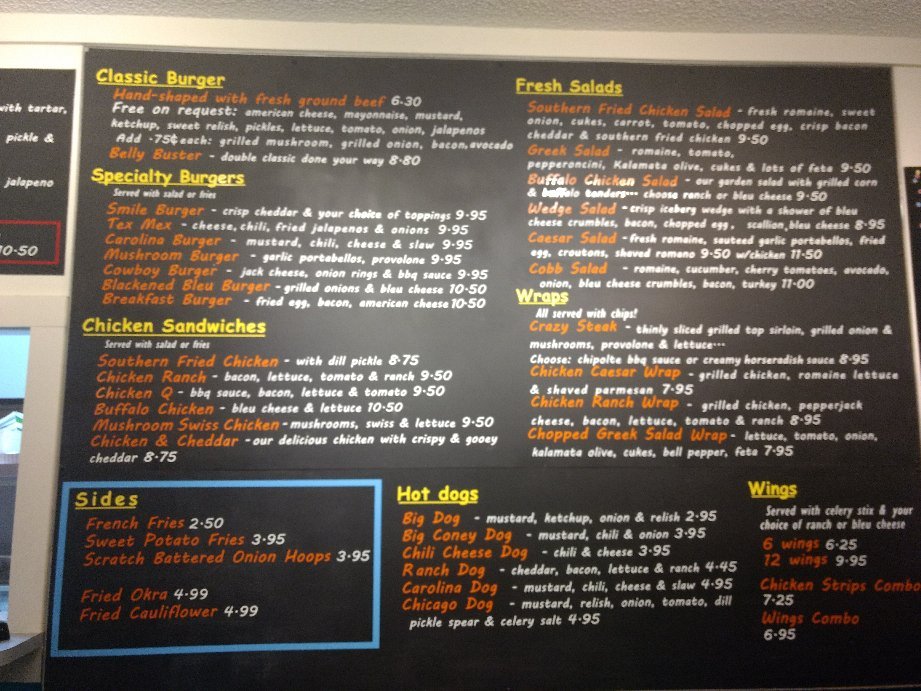 with tartar,
pickle &
jalapeno
10.50
Classic Burger
Hand-shaped with fresh ground beef 6.30
Free on request: american cheese, mayonnaise, mustard,
ketchup, sweet relish, pickles, lettuce, tomato, onion, jalapenos
Add .75¢each: grilled mushroom, grilled onion, bacon,avocado
Belly Buster - double classic done your way 8.80
Specialty Burgers
Served with salad or fries
Smile Burger - crisp cheddar & your choice of toppings 9.95
Tex Mex - cheese,chili, fried jalapenos & onions 9.95
Carolina Burger - mustard, chili, cheese & slaw 9.95
Mushroom Burger - garlic portabellos, provolone 9.95
Cowboy Burger - jack cheese, onion rings & bbq sauce 9.95
Blackened Bleu Burger - grilled onions & bleu cheese 10.50
Breakfast Burger - fried egg, bacon, american cheese 10.50
Chicken Sandwiches
Served with salad or fries
Southern Fried Chicken - with dill pickle 8.75
Chicken Ranch - bacon, lettuce, tomato & ranch 9.50
Chicken Q - bbq sauce, bacon, lettuce & tomato 9.50
Buffalo Chicken - bleu cheese & lettuce 10.50
Mushroom Swiss Chicken - mushrooms, swiss & lettuce 9.50
Chicken & Cheddar - our delicious chicken with crispy & gooey
cheddar 8.75
Fresh Salads
Southern Fried Chicken Salad - fresh romaine, sweet
onion, cukes, carrot, tomato, chopped egg, crisp bacon
cheddar & southern fried chicken 9.50
Greek Salad - romaine, tomato,
pepperoncini, Kalamata olive, cukes & lots of feta 9.50
Buffalo Chicken Salad - our garden salad with grilled corn
& buffalo tenders... choose ranch or bleu cheese 9.50
Wedge Salad - crisp iceberg wedge with a shower of bleu
cheese crumbles, bacon, chopped egg, scallion,bleu cheese 8.95
Caesar Salad - fresh romaine, sauteed garlic portabellos, fried
egg, croutons, shaved romano 9.50 w/chicken 11.50
Cobb Salad - romaine, cucumber, cherry tomatoes, avocado,
onion, bleu cheese crumbles, bacon, turkey 11.00
Wraps
All served with chips!
Crazy Steak - thinly sliced grilled top sirloin, grilled onion &
mushrooms, provolone & lettuce...
Choose: chipolte bbq sauce or creamy horseradish sauce 8.95
Chicken Caesar Wrap - grilled chicken, romaine lettuce
& shaved parmesan 7.95
Chicken Ranch Wrap - grilled chicken, pepperjack
cheese, bacon, lettuce, tomato & ranch 8.95
Chopped Greek Salad Wrap - lettuce, tomato, onion,
kalamata olive, cukes, bell pepper, feta 7.95
Sides
French Fries 2.50
Sweet Potato Fries 3.95
Scratch Battered Onion Hoops 3.95
Fried Okra 4.99
Fried Cauliflower 4.99
Hot dogs
Big Dog - mustard, ketchup, onion & relish 2.95
Big Coney Dog - mustard, chili & onion 3.95
Chili Cheese Dog - chili & cheese 3.95
Ranch Dog - cheddar, bacon, lettuce & ranch 4.45
Carolina Dog - mustard, chili, cheese & slaw 4.95
Chicago Dog - mustard, relish, onion, tomato, dill
pickle spear & celery salt 4.95
Wings
Served with celery stix & your
choice of ranch or bleu cheese
6 wings 6.25
12 wings 9.95
Chicken Strips Combo
7.25
Wings Combo
6.95